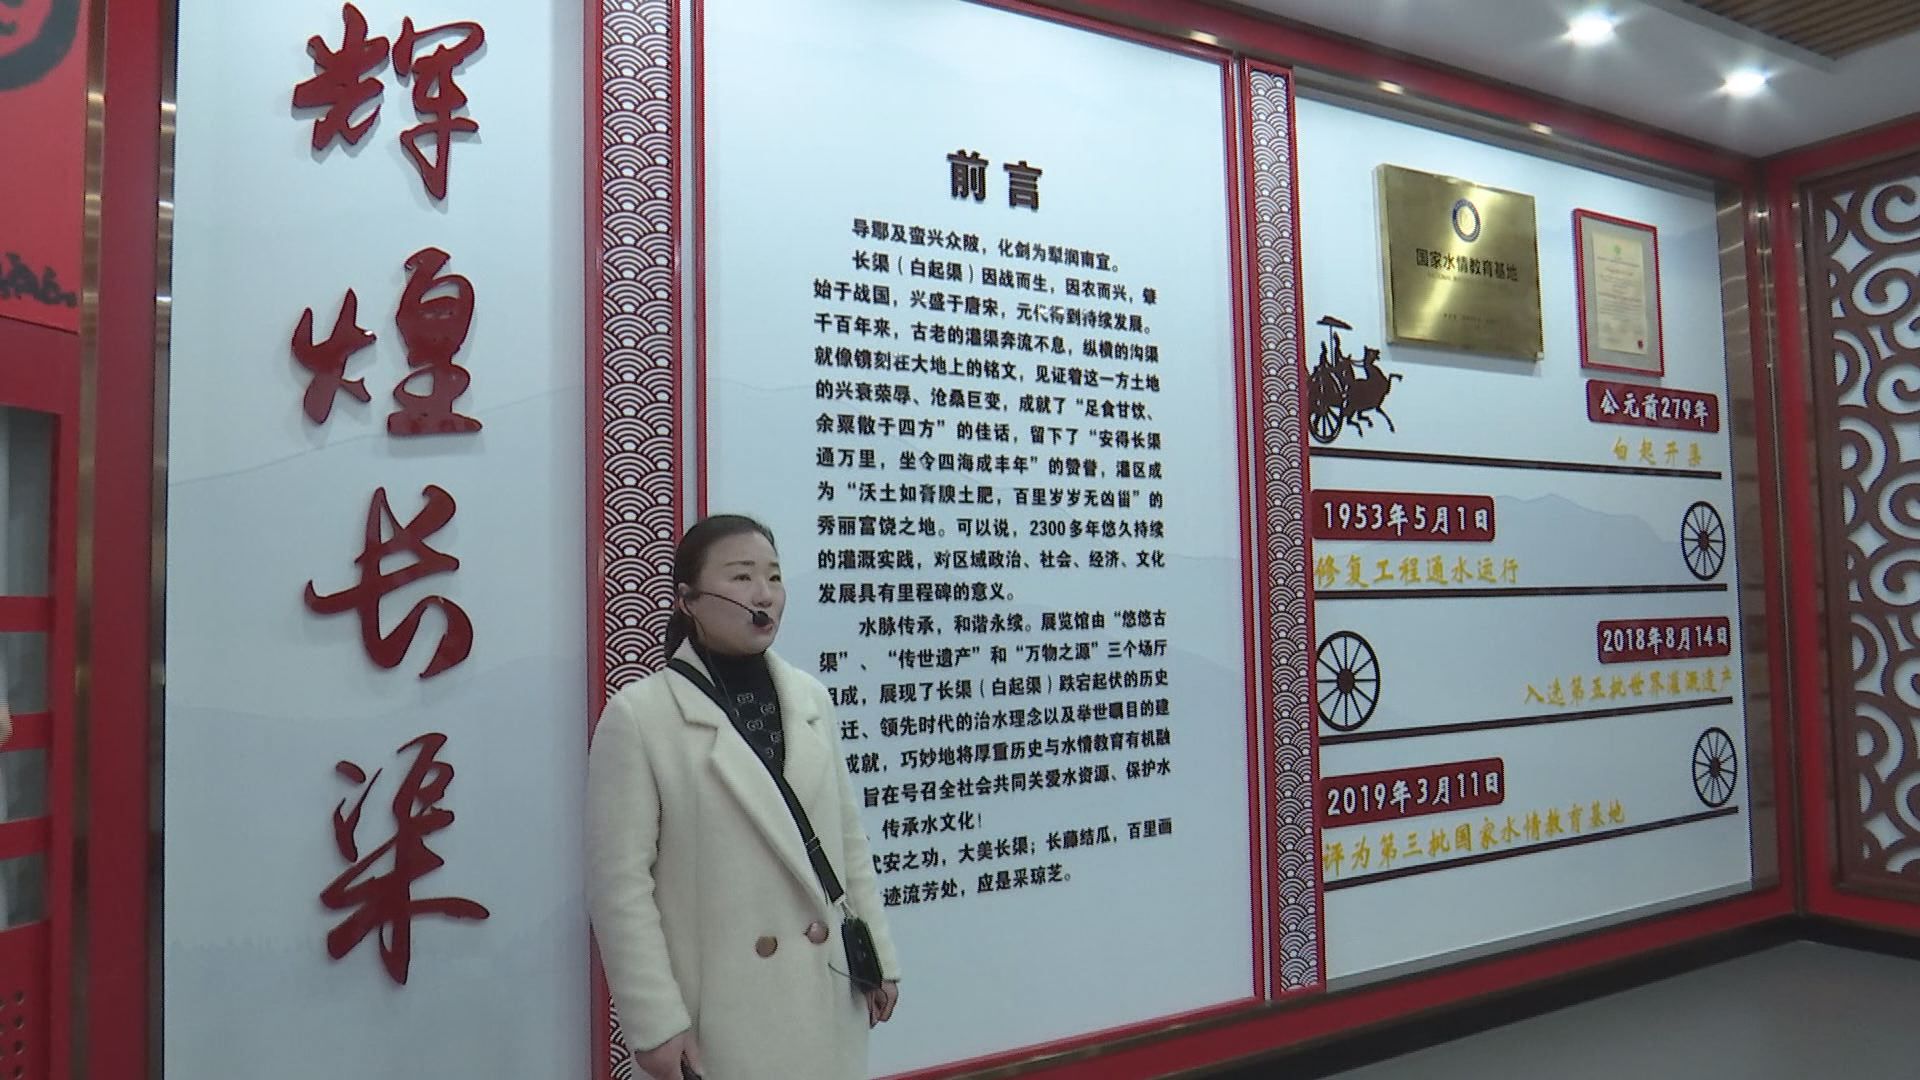 辉煌长渠
前言
导鄢及蛮兴众陂，化剑为犁润南宜。
长渠（白起渠）因战而生，因农而兴，肇
始于战国，兴盛于唐宋，元代得到持续发展。
千百年来，古老的灌渠奔流不息，纵横的沟渠
就像镌刻在大地上的铭文，见证着这一方土地
的兴衰荣辱、沧桑巨变，成就了“足食甘饮、
余粟散于四方”的佳话，留下了“安得长渠
通万里，坐令四海成丰年”的赞誉，灌区成
为“沃土如膏腴土肥，百里岁岁无凶甾”的
秀丽富饶之地。可以说，2300多年悠久持续
的灌溉实践，对区域政治、社会、经济、文化
发展具有里程碑的意义。
水脉传承，和谐永续。展览馆由“悠悠古
渠”、“传世遗产”和“万物之源”三个场厅
组成，展现了长渠（白起渠）跌宕起伏的历史
迁、领先时代的治水理念以及举世瞩目的建
成就，巧妙地将厚重历史与水情教育有机融
旨在号召全社会共同关爱水资源、保护水
、传承水文化！
安之功，大美长渠；长藤结瓜，百里画
迹流芳处，应是采琼芝。
国家水情教育基地
公元前279年
白起开渠
1953年5月1日
修复工程通水运行
2018年8月14日
入选第五批世界灌溉遗产
2019年3月11日
评为第三批国家水情教育基地